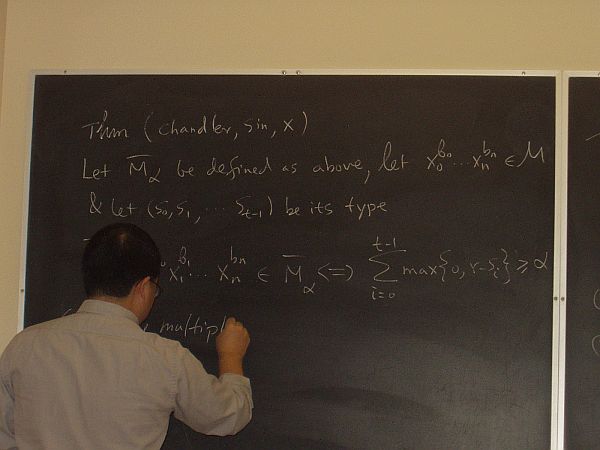 Thm (chandler, sin, x)
Let M̅_α be defined as above, let x_0^{b_0} ... x_n^{b_n} ∈ M
& let (s_0, s_1, ... s_{t-1}) be its type
x_1^{b_1} ... x_n^{b_n} ∈ M̅_α <=> \sum_{i=0}^{t-1} max{0, r-s_i} ≥ α
multipl